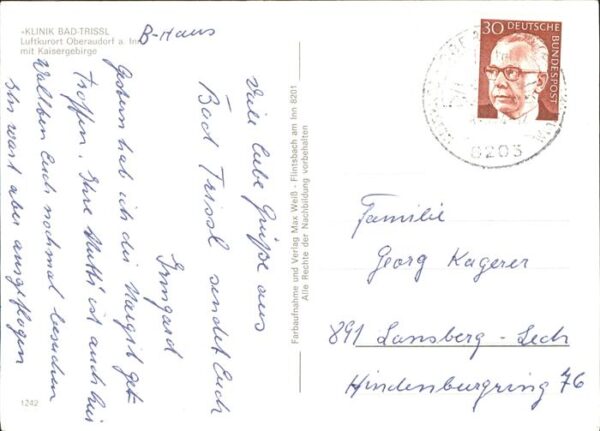 »KLINIK BAD-TRISSL
Luftkurort Oberaudorf a. Inn
mit Kaisergebirge
B-Haus
Viele liebe Grüße aus
Bad Trissl sendet Euch
Irmgard
Gestern hab ich die Margit get-
troffen. Ihre Mutti ist auch hier
Wollten Euch nochmal besuchen
Ihr wart aber ausgeflogen
1242
Farbaufnahme und Verlag Max Weiß · Flintsbach am Inn·8201
Alle Rechte der Nachbildung vorbehalten
30 DEUTSCHE
BUNDESPOST
8203
Familie
Georg Kagerer
891 Lansberg-Lech
Hindenburgring 76